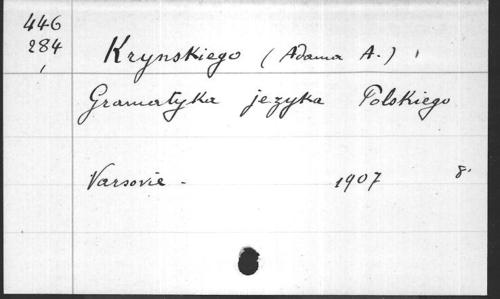 446
284
Krynskiego (Adama A.)
Gramatyka języka Polskiego
Varsovie - 1907 8°